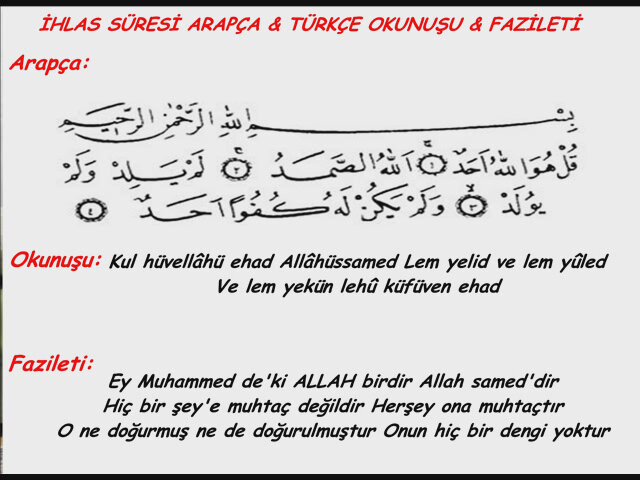 İHLAS SÛRESİ ARAPÇA & TÜRKÇE OKUNUŞU & FAZİLETİ
Arapça:
بِسْمِ اللهِ الرَّحْمٰنِ الرَّحِيمِ
قُلْ هُوَ اللهُ اَحَدٌ ﴿١﴾ اَللهُ الصَّمَدُ ﴿٢﴾ لَمْ يَلِدْ وَلَمْ
يُولَدْ ﴿٣﴾ وَلَمْ يَكُنْ لَهُ كُفُوًا اَحَدٌ ﴿٤﴾
Okunuşu: Kul hüvellâhü ehad Allâhüssamed Lem yelid ve lem yûled
Ve lem yekün lehû küfüven ehad
Fazileti:
Ey Muhammed de'ki ALLAH birdir Allah samed'dir
Hiç bir şey'e muhtaç değildir Herşey ona muhtaçtır
O ne doğurmuş ne de doğurulmuştur Onun hiç bir dengi yoktur